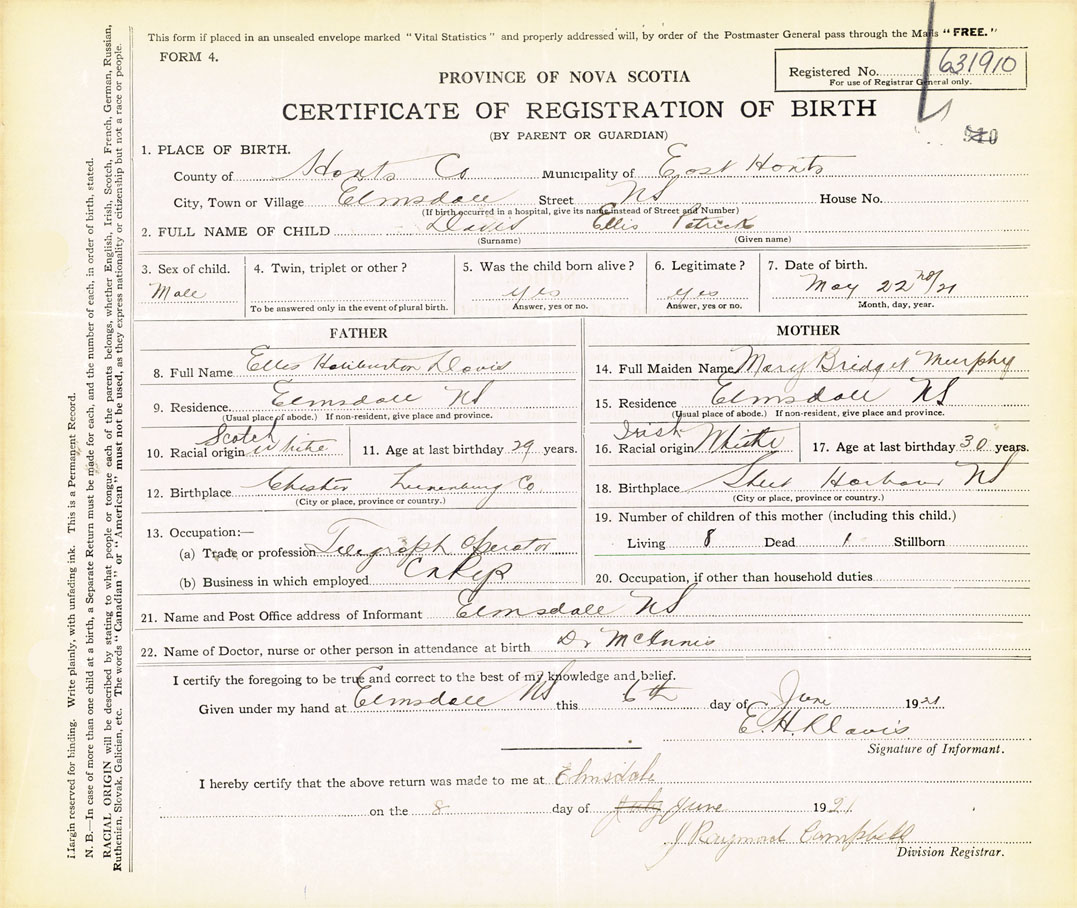 This form if placed in an unsealed envelope marked "Vital Statistics" and properly addressed will, by order of the Postmaster General pass through the Mails "FREE."
FORM 4.
Registered No. 631910
For use of Registrar General only.
PROVINCE OF NOVA SCOTIA
CERTIFICATE OF REGISTRATION OF BIRTH
(BY PARENT OR GUARDIAN)
1. PLACE OF BIRTH.
County of Hants Co Municipality of East Hants
City, Town or Village Elmsdale Street NS House No.
(If birth occurred in a hospital, give its name instead of Street and Number)
2. FULL NAME OF CHILD Davis Ellis Patrick
(Surname) (Given name)
3. Sex of child. 4. Twin, triplet or other? 5. Was the child born alive? 6. Legitimate? 7. Date of birth.
Male yes yes May 22nd/21
To be answered only in the event of plural birth. Answer, yes or no. Answer, yes or no. Month, day, year.
FATHER
8. Full Name Ellis Haliburton Davis
9. Residence. Elmsdale NS
(Usual place of abode.) If non-resident, give place and province.
10. Racial origin Scotch White 11. Age at last birthday 29 years.
12. Birthplace Chester Lunenburg Co
(City or place, province or country.)
13. Occupation:—
(a) Trade or profession Telegraph Operator
(b) Business in which employed C N Ry
MOTHER
14. Full Maiden Name Mary Bridget Murphy
15. Residence Elmsdale NS
(Usual place of abode.) If non-resident, give place and province.
16. Racial origin Irish White 17. Age at last birthday 30 years.
18. Birthplace Sheet Harbour NS
(City or place, province or country.)
19. Number of children of this mother (including this child.)
Living 8 Dead 1 Stillborn
20. Occupation, if other than household duties
21. Name and Post Office address of Informant Elmsdale NS
22. Name of Doctor, nurse or other person in attendance at birth Dr McInnis
I certify the foregoing to be true and correct to the best of my knowledge and belief.
Given under my hand at Elmsdale NS this 6th day of June 1921
E. H. Davis
Signature of Informant.
I hereby certify that the above return was made to me at Elmsdale
on the 8 day of July June 1921
J Raymond Campbell
Division Registrar.
Margin reserved for binding. Write plainly, with unfading ink. This is a Permanent Record.
N. B.—In case of more than one child at a birth, a Separate Return must be made for each, and the number of each, in order of birth, stated.
RACIAL ORIGIN will be described by stating to what people or tongue each of the parents belongs, whether English, Irish, Scotch, French, German, Russian,
Ruthenian, Slovak, Galician, etc. The words "Canadian" or "American" must not be used, as they express nationality or citizenship but not a race or people.